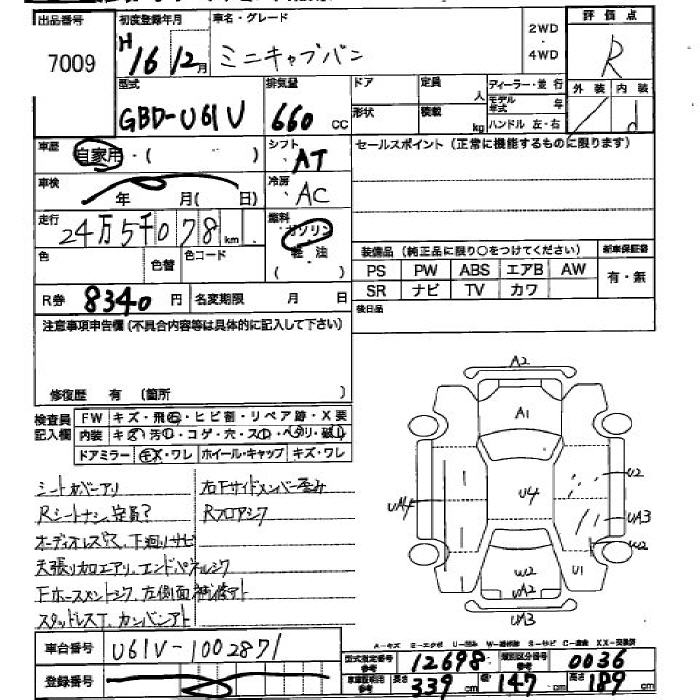 出品番号 初度登録年月 車名・グレード 2WD・4WD 評価点
7009 H16 12月 ミニキャブバン R
型式 排気量 ドア 定員 人 ディーラー・並行 外装 内装
GBD-U61V 660cc 形状 積載 kg モデル年式 年 ハンドル 左・右 / d
車歴 自家用・( ) シフト AT セールスポイント(正常に機能するものに限ります)
車検 年 月( 日) 冷房 AC
走行 24万5千078km 燃料 ガソリン 軽・注 ( )
色 色替 色コード 装備品(純正品に限り○をつけてください) 新車保証書
PS PW ABS エアB AW 有・無
SR ナビ TV カワ
R券 8340円 名変期限 月 日 後日品
注意事項申告欄(不具合内容等は具体的に記入して下さい)
修復歴 有 (箇所 )
検査員記入欄 FW キズ・飛石・ヒビ割・リペア跡・X要
内装 キズ・汚れ・コゲ・穴・スレ・ヘタリ・破れ
ドアミラー キズ・ワレ ホイール・キャップ キズ・ワレ
シートカバーアリ 右Fサイドメンバー歪み
Rシートナシ、定員? Rフロアシワ
オーディオレス 下廻りサビ
天張り加工アリ、エンドパネルシワ
Fホースメントシワ 左側面補修アト
スタッドレスT、カンバンアト
A2
A1
U2
UA4 U4 UA3
W2
W2 U1
UA2
UA3
A-キズ E-エクボ U-凹み W-補修跡 S-サビ C-腐食 XX-交換済
車台番号 U61V-1002871 型式指定番号 参考 12698 類別区分番号 参考 0036
登録番号 車庫証明用 参考 長さ 339cm 幅 147cm 高さ 189cm